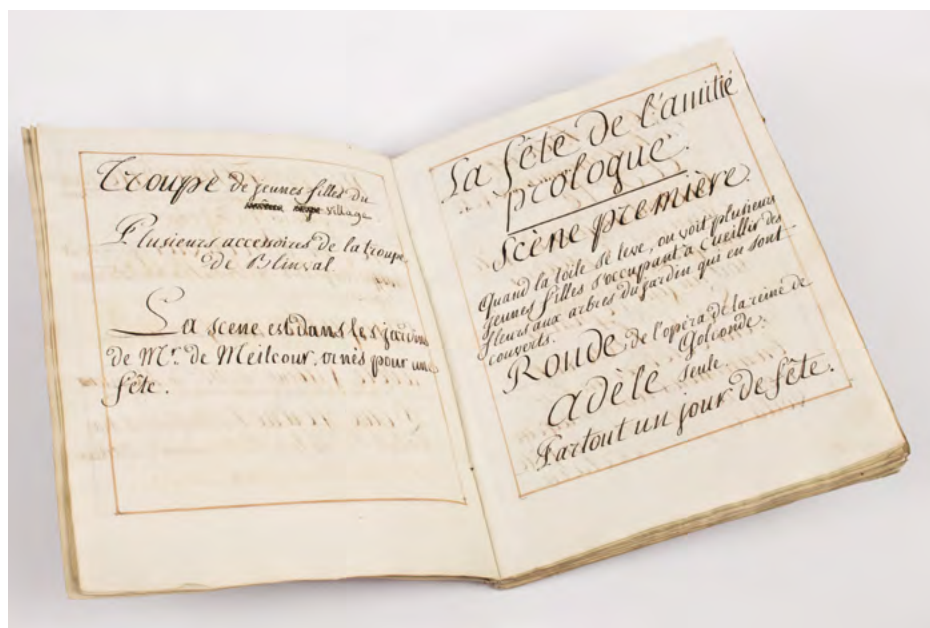 Troupe de jeunes filles du
village
Plusieurs accessoires de la troupe
de Blinval
La scene est dans les jardins
de Mr. de Meilcour, ornés pour une
fête.
La fête de l'amitié
prologue.
Scène première.
Quand la toile se leve, on voit plusieurs
jeunes filles s'occupant à cueillir des
fleurs aux arbres du jardin qui en sont
couverts.
Ronde de l'opera de la reine de
Golconde.
Adèle seule.
Partout un jour de fête.